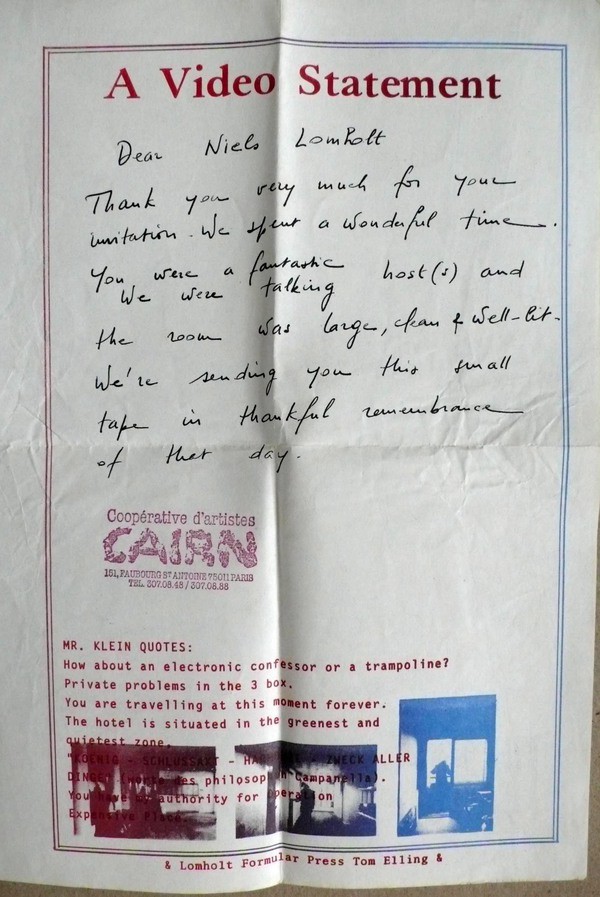 A Video Statement
Dear Niels Lomholt
Thank you very much for your
invitation. We spent a wonderful time.
You were a fantastic host(s) and
We were talking
the room was large, clean & well-lit.
We're sending you this small
tape in thankful remembrance
of that day.
Coopérative d'artistes
CAIRN
151, FAUBOURG ST ANTOINE 75011 PARIS
TEL. 307.08.48 / 307.08.88
MR. KLEIN QUOTES:
How about an electronic confessor or a trampoline?
Private problems in the 3 box.
You are travelling at this moment forever.
The hotel is situated in the greenest and
quietest zone.
"KOENIG - SCHLUSSAKT - - ZWECK ALLER
DINGE" des philosoph Campanella).
You have authority for operation
Expensive Place.
& Lomholt Formular Press Tom Elling &